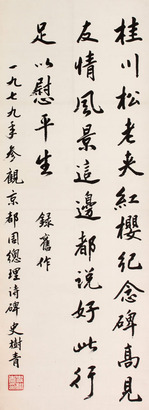 桂川松老夹紅櫻紀念碑高見
友情風景這邊都說好此行
足以慰平生　錄舊作
一九七九年參觀京都周總理诗碑 史樹青